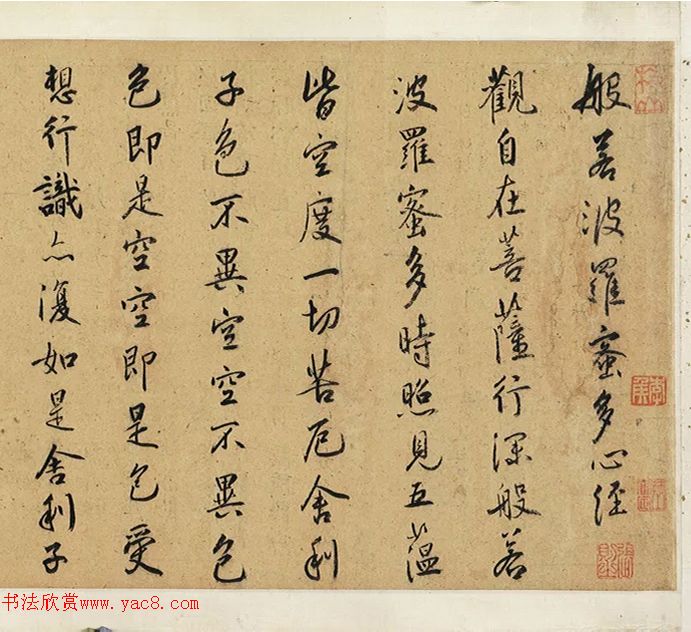 般若波羅蜜多心經
觀自在菩薩行深般若
波羅蜜多時照見五蘊
皆空度一切苦厄舍利
子色不異空空不異色
色即是空空即是色受
想行識亦復如是舍利子
书法欣赏www.yac8.com